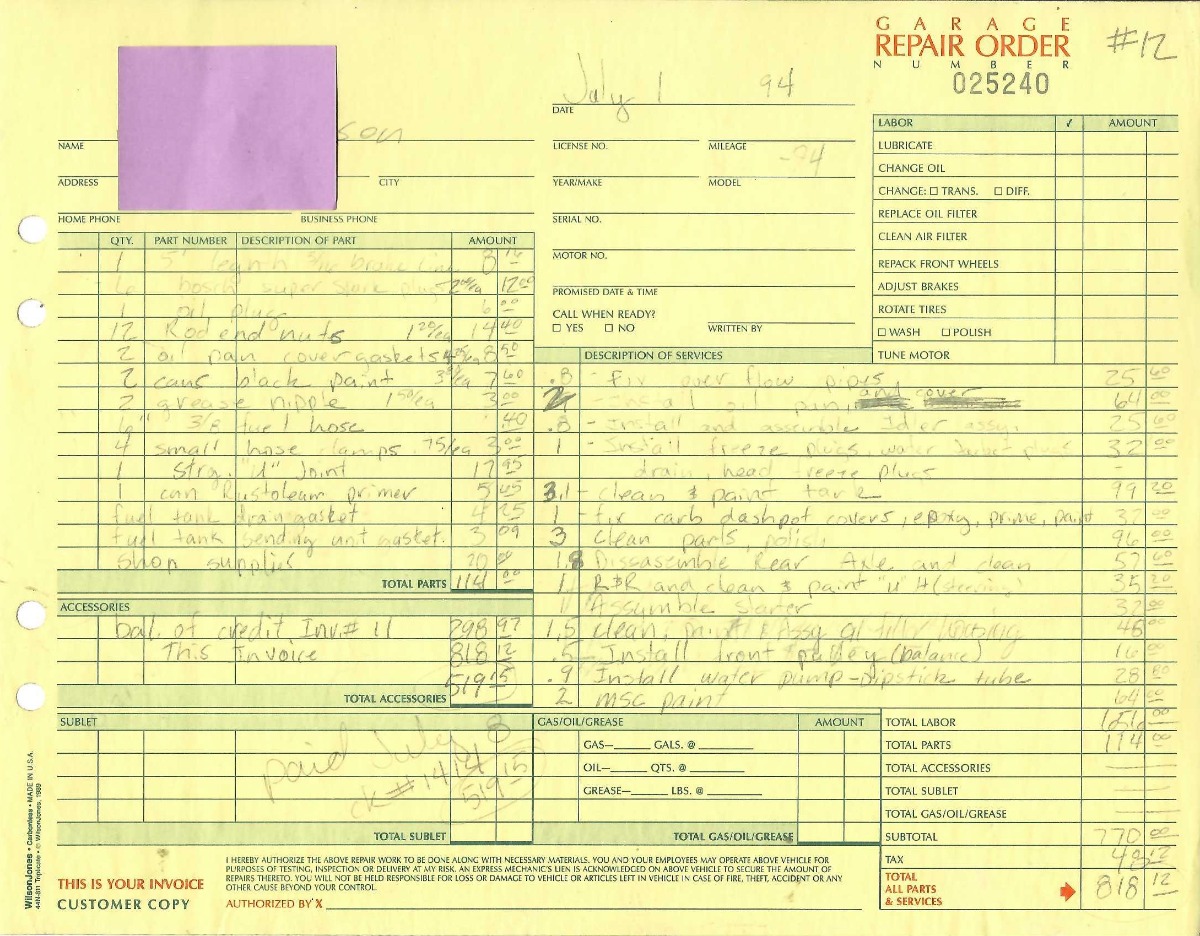 GARAGE
REPAIR ORDER
NUMBER
025240
#12
July 1 94
DATE
son
NAME
LICENSE NO. MILEAGE
-94
ADDRESS CITY
YEAR/MAKE MODEL
HOME PHONE BUSINESS PHONE
SERIAL NO.
MOTOR NO.
PROMISED DATE & TIME
CALL WHEN READY?
☐ YES ☐ NO WRITTEN BY
LABOR ✓ AMOUNT
LUBRICATE
CHANGE OIL
CHANGE: ☐ TRANS. ☐ DIFF.
REPLACE OIL FILTER
CLEAN AIR FILTER
REPACK FRONT WHEELS
ADJUST BRAKES
ROTATE TIRES
☐ WASH ☐ POLISH
TUNE MOTOR
QTY. PART NUMBER DESCRIPTION OF PART AMOUNT
1 5' legnth 3/16 brake line 8
6 bosch super spark plugs 2 00/ea 12 00
1 oil plug 6 00
12 Rod end nuts 1 20/ea 14 40
2 oil pan cover gaskets 4 25/ea 8 50
2 cans black paint 3 80/ea 7 60
2 grease nipple 1 50/ea 3 00
6" 3/8 fuel hose 40
4 small hose clamps 75/ea 3 00
1 Strg. "U" Joint 17 95
1 can Rustoleum primer 5 45
fuel tank drain gasket 4 25
fuel tank sending unit gasket. 3 09
shop supplies 20 00
TOTAL PARTS 114 00
ACCESSORIES
bal. of credit Inv.# 11 298 97
This Invoice 818 12
519 15
TOTAL ACCESSORIES
DESCRIPTION OF SERVICES
.8 - fix over flow pipes 25 60
2 - Install oil pan and cover 64 00
.8 - Install and assemble Idler assy. 25 60
1 - Install freeze plugs, water jacket plugs 32 00
drain, head freeze plugs -
3.1 - clean & paint tank 99 20
1 - fix carb dashpot covers, epoxy, prime, paint 32 00
3 clean parts, polish 96 00
1.8 Dissasemble Rear Axe and clean 57 60
1.1 R&R and clean & paint "U" (steering) 35 20
1 Assumble starter 32 00
1.5 clean, paint & Assy housing 48 00
.5 - Install front pulley (balance) 16 00
.9 Install water pump - dipstick tube 28 80
2 msc paint 64 00
SUBLET
paid July 8
ck #1414
519 15
TOTAL SUBLET
GAS/OIL/GREASE AMOUNT
GAS— GALS. @
OIL— QTS. @
GREASE— LBS. @
TOTAL GAS/OIL/GREASE
TOTAL LABOR 656 00
TOTAL PARTS 114 00
TOTAL ACCESSORIES
TOTAL SUBLET
TOTAL GAS/OIL/GREASE
SUBTOTAL 770 00
TAX 48 12
TOTAL
ALL PARTS
& SERVICES 818 12
WilsonJones • Carbonless • MADE IN U.S.A.
44N-811 Triplicate • © WilsonJones, 1989
THIS IS YOUR INVOICE
CUSTOMER COPY
I HEREBY AUTHORIZE THE ABOVE REPAIR WORK TO BE DONE ALONG WITH NECESSARY MATERIALS. YOU AND YOUR EMPLOYEES MAY OPERATE ABOVE VEHICLE FOR
PURPOSES OF TESTING, INSPECTION OR DELIVERY AT MY RISK. AN EXPRESS MECHANIC'S LIEN IS ACKNOWLEDGED ON ABOVE VEHICLE TO SECURE THE AMOUNT OF
REPAIRS THERETO. YOU WILL NOT BE HELD RESPONSIBLE FOR LOSS OR DAMAGE TO VEHICLE OR ARTICLES LEFT IN VEHICLE IN CASE OF FIRE, THEFT, ACCIDENT OR ANY
OTHER CAUSE BEYOND YOUR CONTROL.
AUTHORIZED BY X